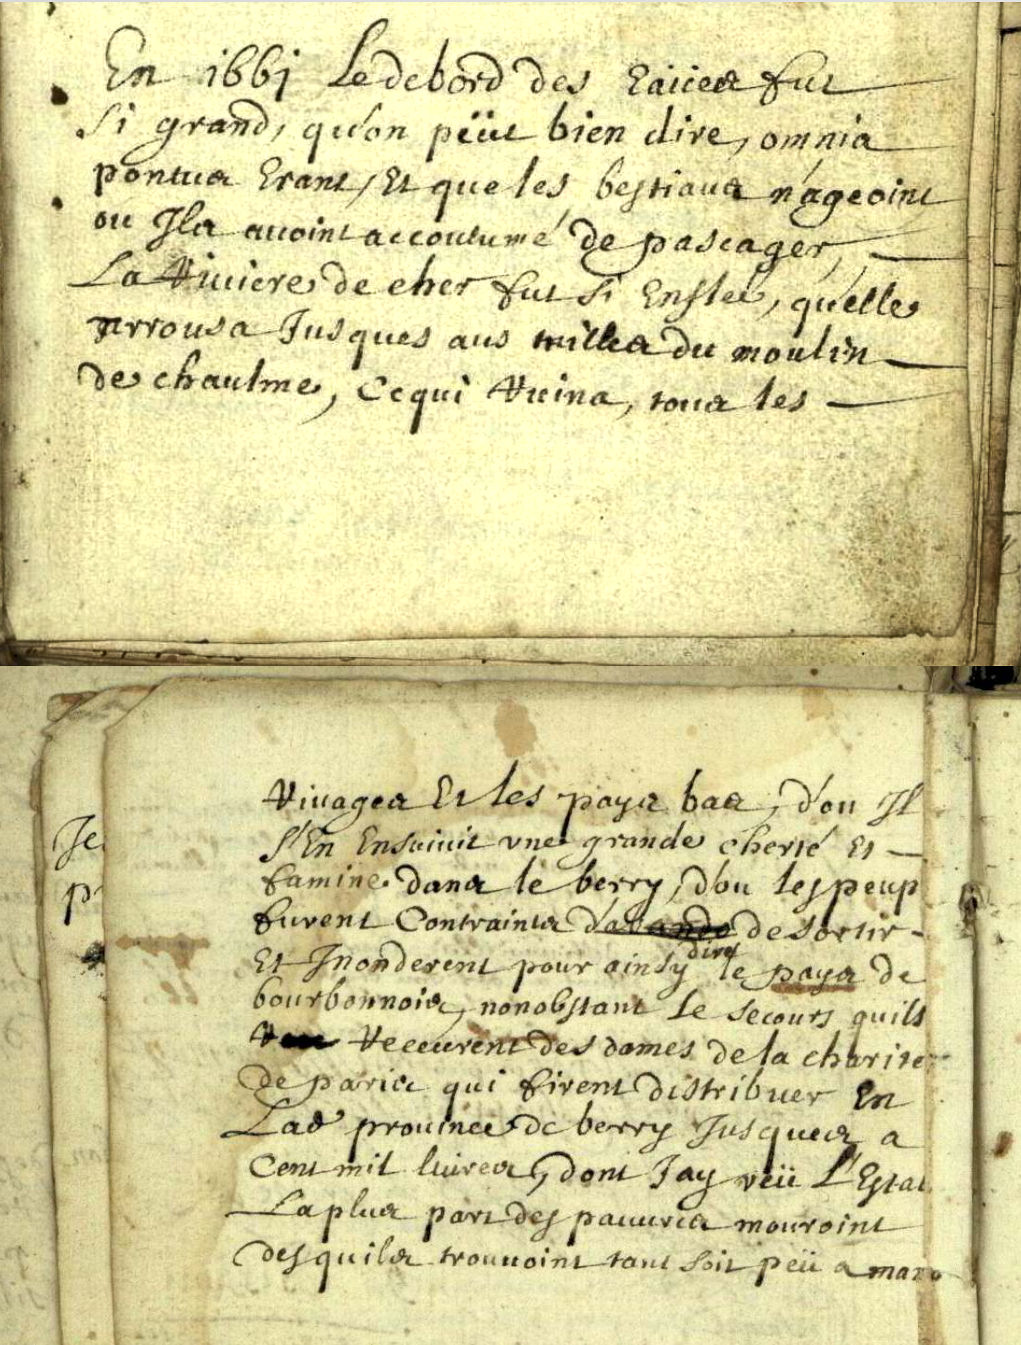 En 1661 Le debord des Eaües fut
si grand, qu'on peüt bien dire, omnia
pontus Erant, Et que les bestiaux nágeoint
ou Ils auoint accoutumé de pascager,
La Riuiere de cher fut si Enflée, qu'elle
arrousa Jusques aus milles du moulin
de chaulme, Ce qui Ruina, tous les
Riuages Et les pays bas, d'ou Il
s'En Ensuiuit vne grande cherté Et
famine dans le berry, d'ou les peup
furent Contraints d'abando de sortir
Et Inonderent pour ainsy dire le pays de
bourbonnois, nonobstant Le secours quils
Receurent des dames de la charite
de paris qui firent distribuer En
Lad prouince de berry Jusques a
Cent mil liures, dont Jay veü L'Estat
La plus part des pauures mouroint
des quils trouuoint tant soit peü a man